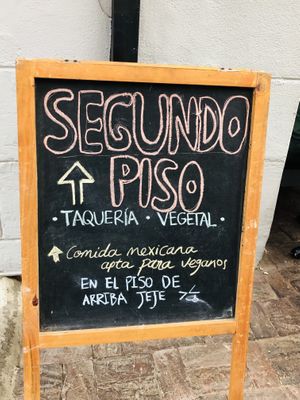 SEGUNDO
PISO
· TAQUERÍA · VEGETAL ·
Comida mexicana
apta para veganos
EN EL PISO DE
ARRIBA JEJE